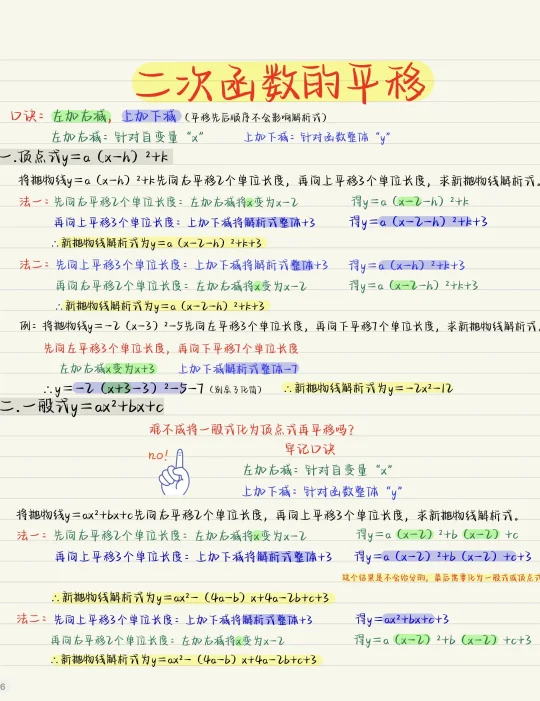 二次函数的平移
口诀：左加右减，上加下减（平移先后顺序不会影响解析式）
左加右减：针对自变量“x” 上加下减：针对函数整体“y”
一.顶点式y=a（x-h）²+k
将抛物线y=a（x-h）²+k先向右平移2个单位长度，再向上平移3个单位长度，求新抛物线解析式。
法一：先向右平移2个单位长度：左加右减将x变为x-2 得y=a（x-2-h）²+k
再向上平移3个单位长度：上加下减将解析式整体+3 得y=a（x-2-h）²+k+3
∴新抛物线解析式为y=a（x-2-h）²+k+3
法二：先向上平移3个单位长度：上加下减将解析式整体+3 得y=a（x-h）²+k+3
再向右平移2个单位长度：左加右减将x变为x-2 得y=a（x-2-h）²+k+3
∴新抛物线解析式为y=a（x-2-h）²+k+3
例：将抛物线y=-2（x-3）²-5先向左平移3个单位长度，再向下平移7个单位长度，求新抛物线解析式。
先向左平移3个单位长度，再向下平移7个单位长度
左加右减x变为x+3 上加下减解析式整体-7
∴y=-2（x+3-3）²-5-7（别忘了化简） ∴新抛物线解析式为y=-2x²-12
二.一般式y=ax²+bx+c
难不成将一般式化为顶点式再平移吗？
no! 牢记口诀
左加右减：针对自变量“x”
上加下减：针对函数整体“y”
将抛物线y=ax²+bx+c先向右平移2个单位长度，再向上平移3个单位长度，求新抛物线解析式。
法一：先向右平移2个单位长度：左加右减将x变为x-2 得y=a（x-2）²+b（x-2）+c
再向上平移3个单位长度：上加下减将解析式整体+3 得y=a（x-2）²+b（x-2）+c+3
这个结果是不会给分的，最后需要化为一般式或顶点式
∴新抛物线解析式为y=ax²-（4a-b）x+4a-2b+c+3
法二：先向上平移3个单位长度：上加下减将解析式整体+3 得y=ax²+bx+c+3
再向右平移2个单位长度：左加右减将x变为x-2 得y=a（x-2）²+b（x-2）+c+3
∴新抛物线解析式为y=ax²-（4a-b）x+4a-2b+c+3
6